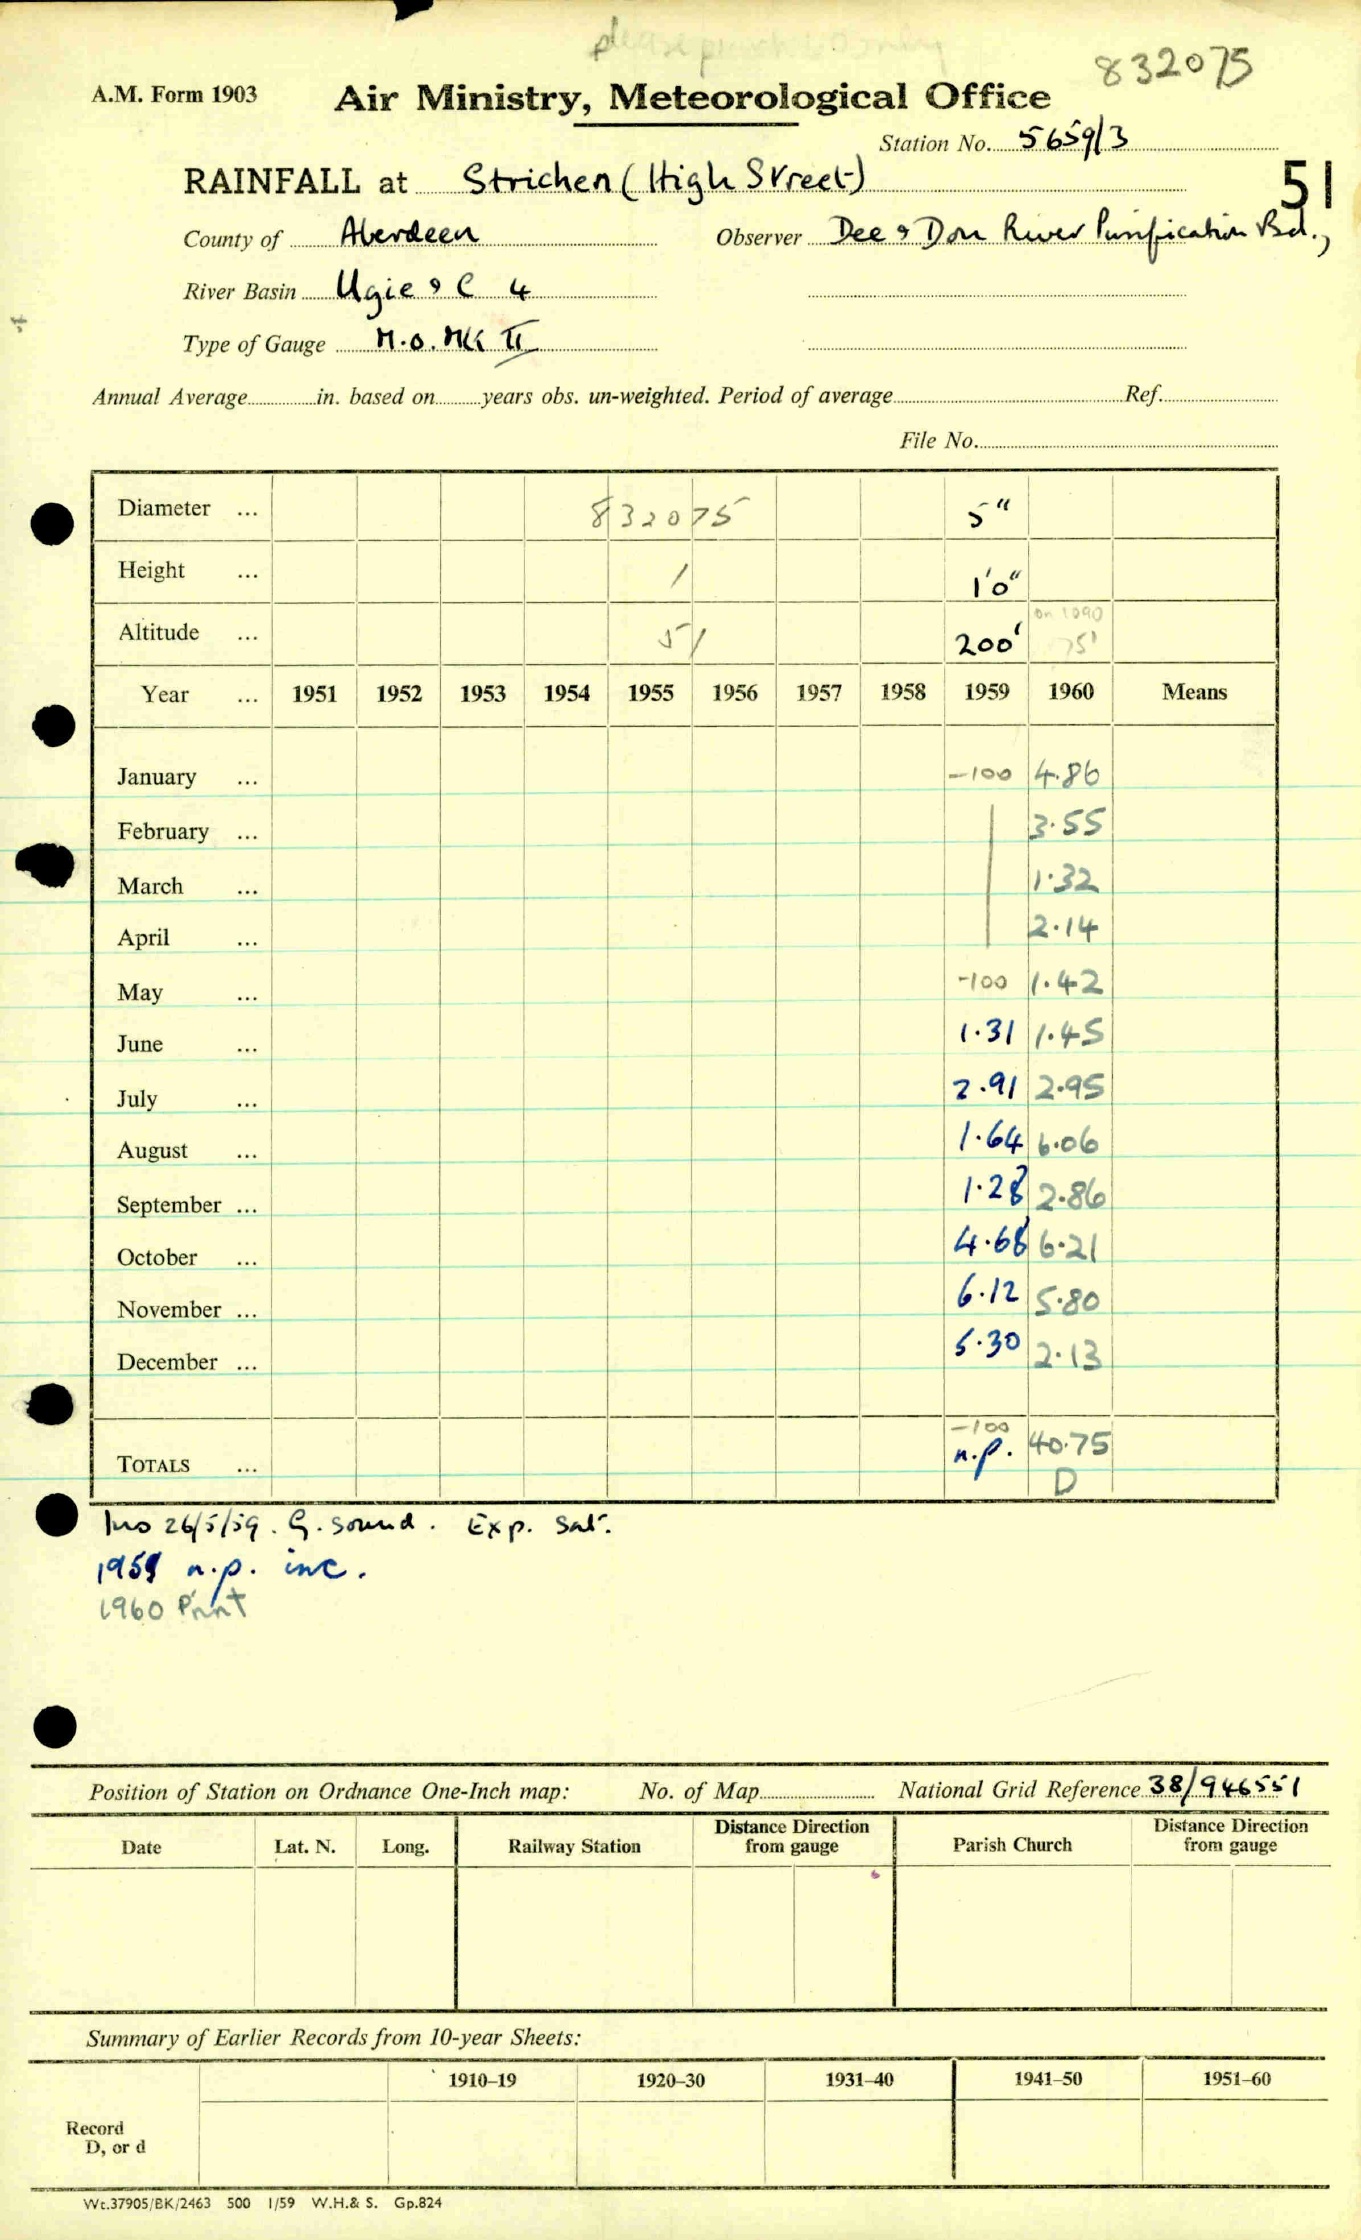 832075
A.M. Form 1903 Air Ministry, Meteorological Office
Station No. 5659/3
RAINFALL at Strichen (High Street) 51
County of Aberdeen Observer Dee & Don River Purification Bd.,
River Basin Ugie & C 4
Type of Gauge M.O. MK II
Annual Average in. based on years obs. un-weighted. Period of average Ref.
File No.
Diameter ... 832075 5"
Height ... 1 1'0"
Altitude ... 51 200' 75'
Year ... 1951 1952 1953 1954 1955 1956 1957 1958 1959 1960 Means
January ... -100 4.86
February ... 3.55
March ... 1.32
April ... 2.14
May ... -100 1.42
June ... 1.31 1.45
July ... 2.91 2.95
August ... 1.64 6.06
September ... 1.28 2.86
October ... 4.68 6.21
November ... 6.12 5.80
December ... 5.30 2.13
-100
TOTALS ... n.p. 40.75
D
Ins 26/5/59. G. sound. Exp. Sat.
1959 n.p. inc.
1960 Print
Position of Station on Ordnance One-Inch map: No. of Map National Grid Reference 38/946551
Date Lat. N. Long. Railway Station Distance Direction from gauge Parish Church Distance Direction from gauge
Summary of Earlier Records from 10-year Sheets:
1910–19 1920–30 1931–40 1941–50 1951–60
Record
D, or d
Wt.37905/BK/2463 500 1/59 W.H.& S. Gp.824